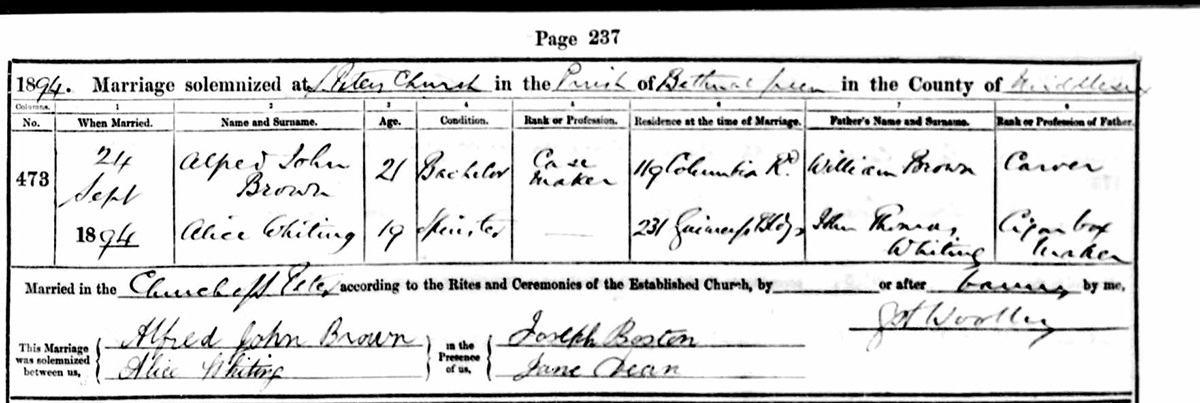 Page 237
1894. Marriage solemnized at St Peters Church in the Parish of Bethnal Green in the County of Middlesex
Columns. 1 2 3 4 5 6 7 8
No. When Married. Name and Surname. Age. Condition. Rank or Profession. Residence at the time of Marriage. Father's Name and Surname. Rank or Profession of Father.
473 24 Sept 1894
Alfred John Brown 21 Bachelor Case Maker 119 Columbia Rd. William Brown Carver
Alice Whiting 19 Spinster — 231 Bldgs John Thomas Whiting Cigar box Maker
Married in the Church of St Peter according to the Rites and Ceremonies of the Established Church, by or after banns by me,
This Marriage was solemnized between us, Alfred John Brown in the Presence of us, Joseph Boston
Alice Whiting Jane Dean
Woolley